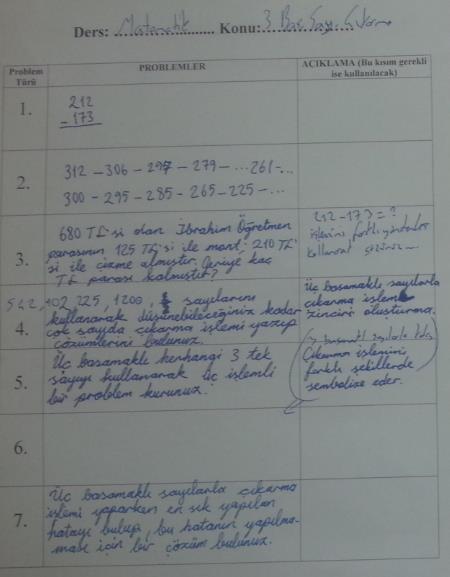 Ders: Matematik Konu: 3 Bas. Sayı. Çıkarma
Problem Türü
PROBLEMLER
AÇIKLAMA (Bu kısım gerekli ise kullanılacak)
1.
212
- 173
2.
312 - 306 - 297 - 279 - ...261-...
300 - 295 - 285 - 265 - 225 - ...
3.
680 TL'si olan İbrahim Öğretmen
parasının 125 TL'si ile mont, 210 TL'
si ile çizme almıştır. Geriye kaç
TL parası kalmıştır?
212 - 173 = ?
işlemini farklı yöntemler
kullanarak çözünüz.
4.
542, 102, 225, 1200, sayılarını
kullanarak düşünebileceğiniz kadar
çok sayıda çıkarma işlemi yazıp
çözümlerini bulunuz.
Üç basamaklı sayılarla
çıkarma işlem
zinciri oluşturma.
5.
Üç basamaklı herhangi 3 tek
sayıyı kullanarak üç işlemli
bir problem kurunuz.
3 basamaklı sayılarla
Çıkarma işlemini
farklı şekillerde
sembolize eder.
6.
7.
Üç basamaklı sayılarla çıkarma
işlemi yaparken en sık yapılan
hatayı bulup, bu hatanın yapılma-
ması için bir çözüm bulunuz.